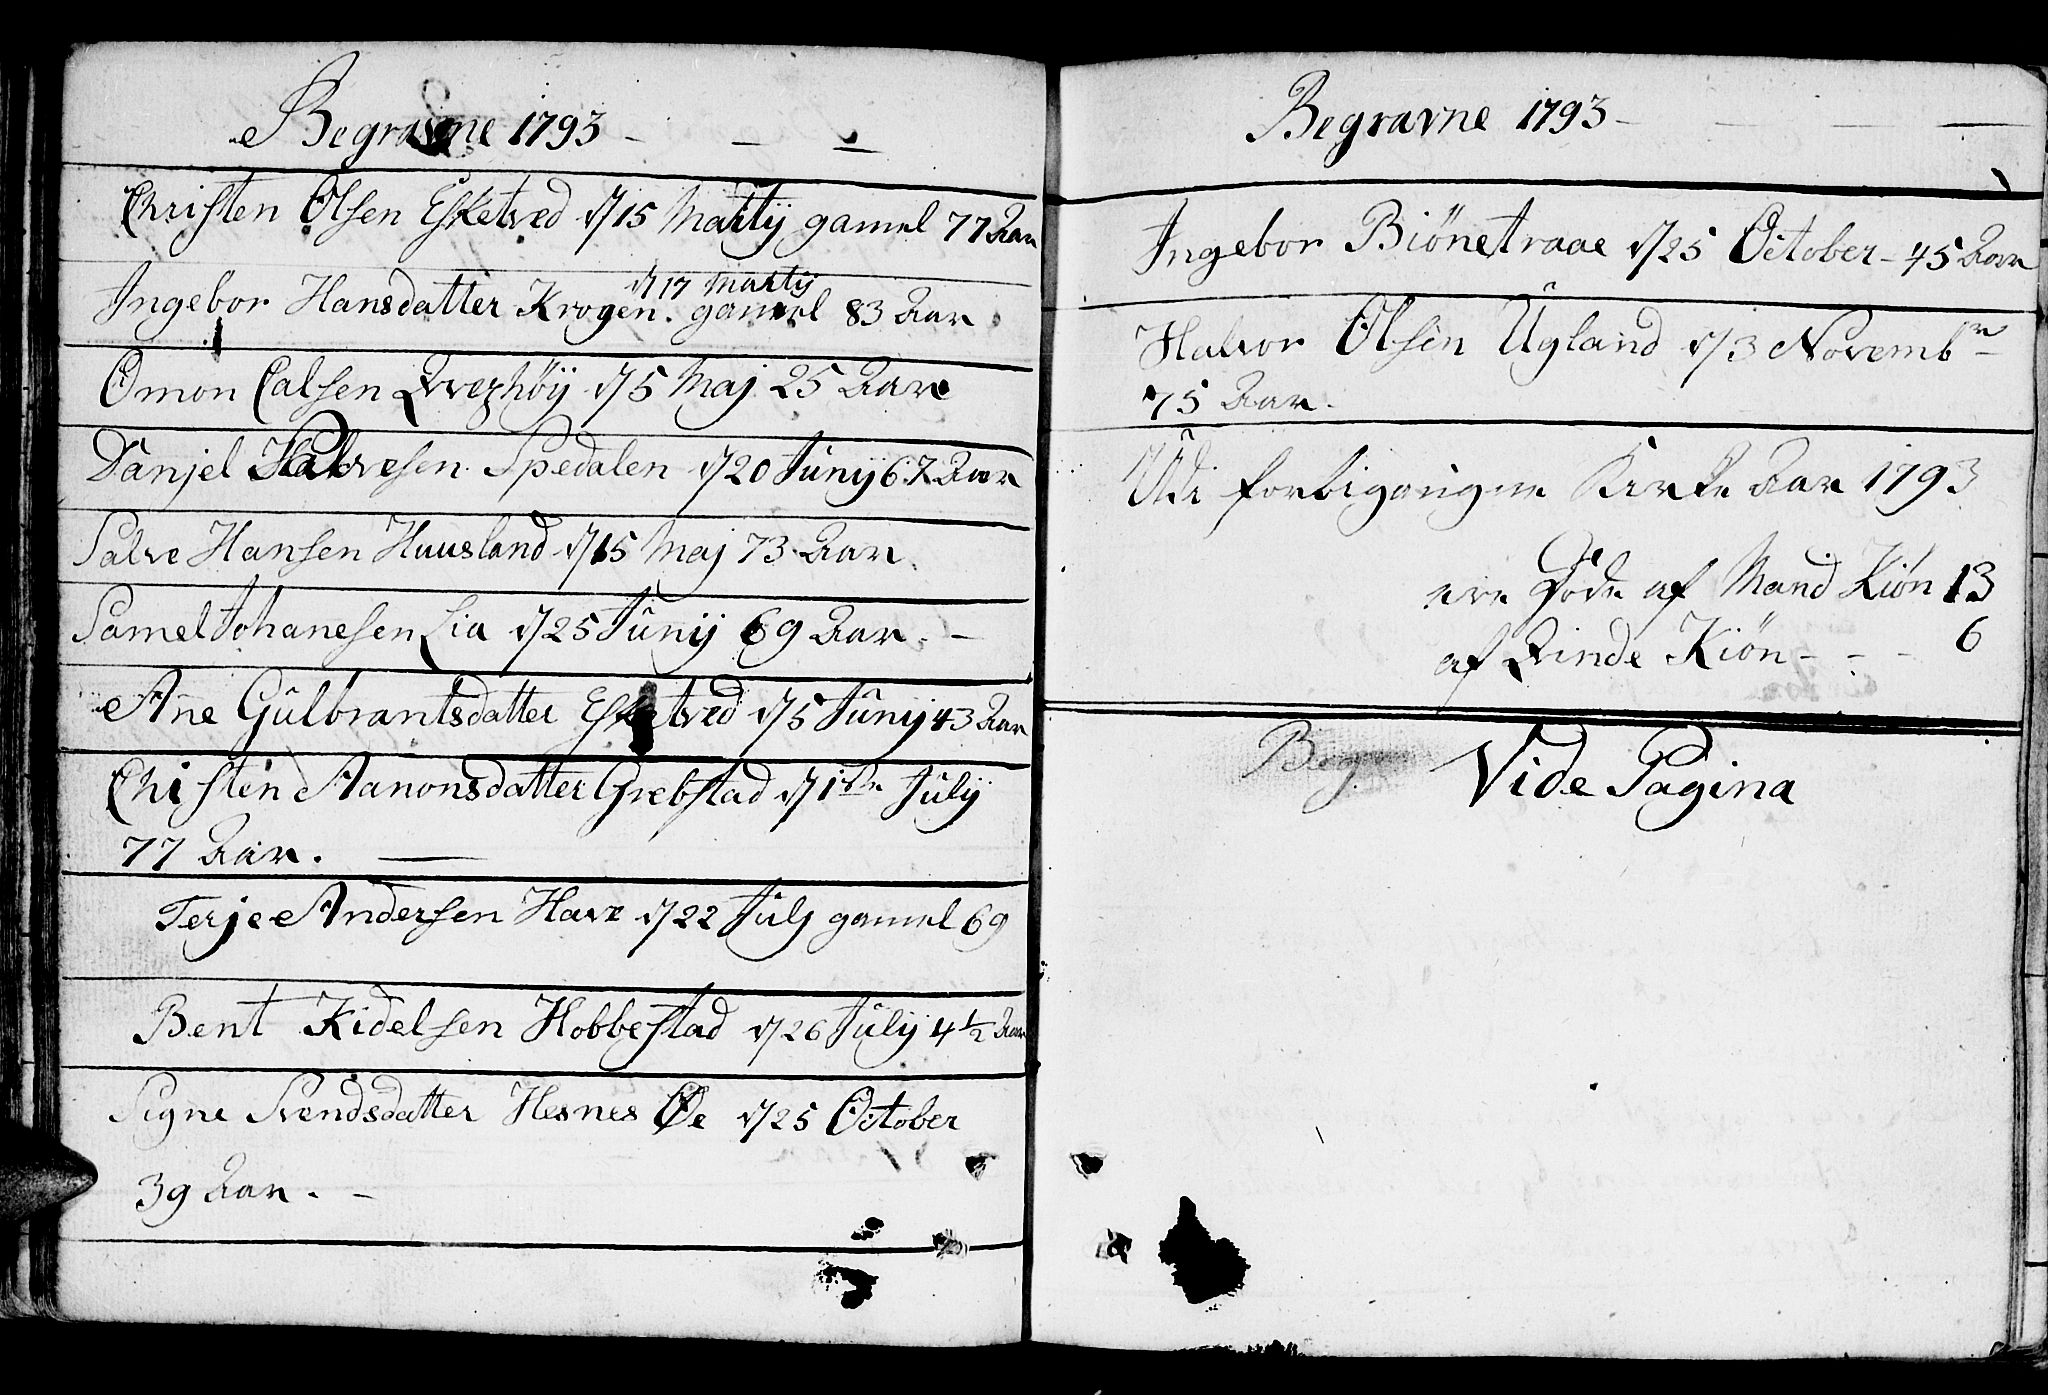 Begravne 1793 - - -
Christen Olsen Esketved d/15 Martij gamel 77 Aar
d 17 Martij
Ingebor Hansdatter Krogen. gamel 83 Aar
Omon Calsen d/5 Maj 25 Aar
Danjel Halvesen Spedalen d/20 Junij 67 Aar
Salve Hansen Huusland d/15 Maj 73 Aar.
Samel Johanesen Lia d/25 Junij 69 Aar. -
Ane Gulbrantsdatter Esketved d/5 Junij 43 Aar
Christen Aanonsdatter Grebstad d/1ste Julij
77 Aar. -
Terje Andersen Have d/22 Julj gamel 69
Bent Kidelsen Hobbestad d/26 Julij 4 1/2 Aar
Signe Svendsdatter Hesnes Øe d/25 October
39 Aar. -
Begravne 1793 - - - -
Ingebor Biönetraae d/25 October - 45 Aar
Halvor Olsen Ugland d/3 Novembr
75 Aar.
Udi forbigangne Kirke Aar 1793
ere Döde af Mand Kiön 13
af Qvinde Kiön - - - 6
Beg. Vide Pagina